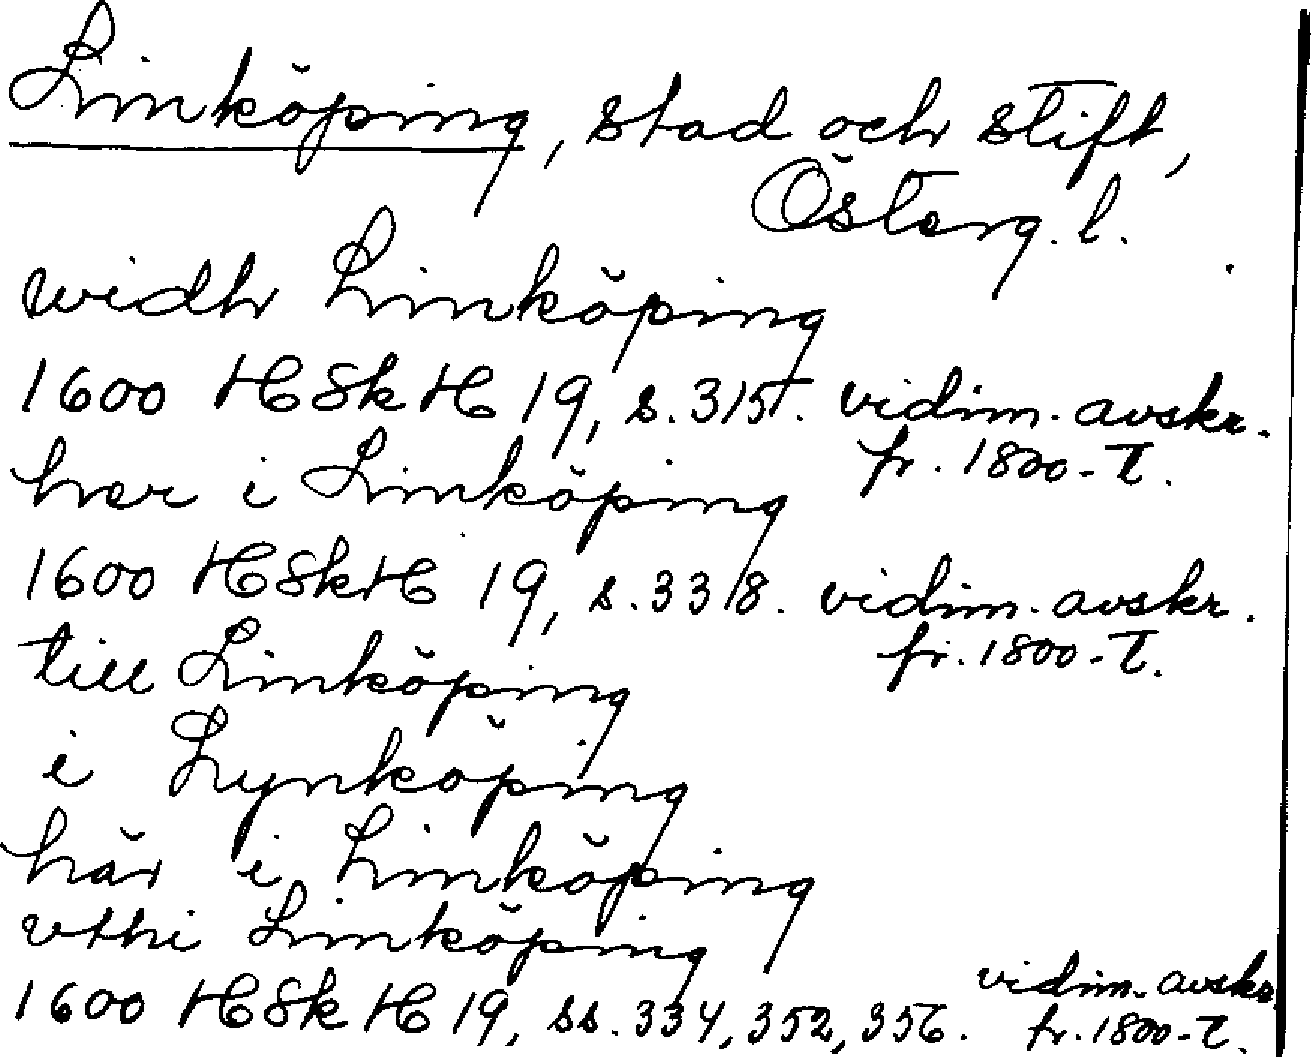 Linköping, stad och stift,
Österg. l.
widh Linköping
1600 HSkH 19, s. 315. vidim. avskr.
fr. 1800-t.
her i Linköping
1600 HSkH 19, s. 338. vidim. avskr.
fr. 1800-t.
till Linköping
i Lynköping
här i Linköping
vthi Linköping
1600 HSkH 19, ss. 334, 352, 356. vidim. avskr.
fr. 1800-t.